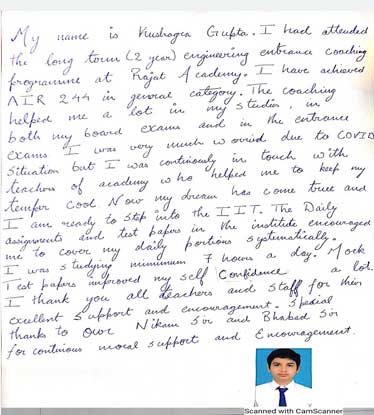 My name is Kushagra Gupta. I had attended
the long term (2 year) engineering entrance coaching
programme at Rajat Academy. I have achieved
AIR 244 in general category. The coaching
helped me a lot in my studies, in
both my board exams and in the entrance
exams I was very much worried due to COVID
situation but I was continously in touch with
teachers of academy who helped me to keep my
temper cool Now my dream has come true and
I am ready to step into the IIT. The Daily
assignments and test papers in the institute encouraged
me to cover my daily portions systematically.
I was studying minimum 7 hours a day. Mock
Test papers improved my self Confidence a lot.
I thank you all teachers and staff for their
excellent support and encouragement. Special
thanks to our Nikam Sir and Bhabad Sir
for continious moral support and Encouragement.
Scanned with CamScanner